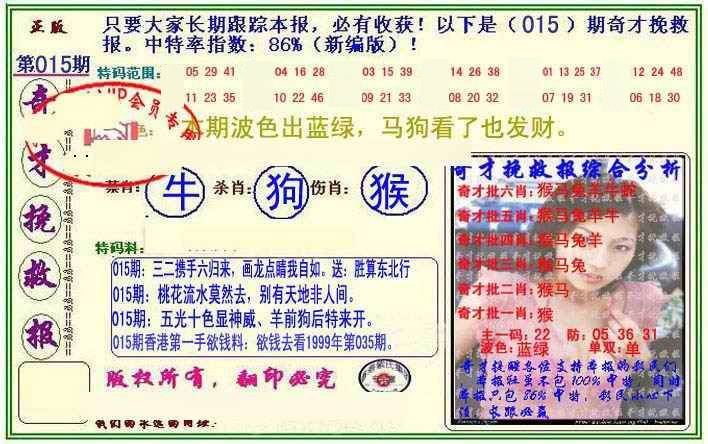 正版
只要大家长期跟踪本报，必有收获！以下是（015）期奇才挽救
报。中特率指数：86%（新编版）！
第015期
特码范围：
05 29 41 04 16 28 03 15 39 14 26 38 01 13 25 37 12 24 48
11 23 35 10 22 46 09 21 33 08 20 32 07 19 31 06 18 30
VIP会员专
色：
本期波色出蓝绿，马狗看了也发财。
奇才挽救报
禁肖：牛 杀肖：狗 伤肖：猴
特码料：
015期：三二携手六归来，画龙点睛我自如。送：胜算东北行
015期：桃花流水莫然去，别有天地非人间。
015期：五光十色显神威、羊前狗后特来开。
015期香港第一手欲钱料：欲钱去看1999年第035期。
版权所有，翻印必究
我们的永远的网址：
奇才挽救报综合分析
奇才批六肖：猴马兔羊牛蛇
奇才批五肖：猴马兔羊牛
奇才批四肖：猴马兔羊
奇才批三肖：猴马兔
奇才批二肖：猴马
奇才批一肖：猴
主一码：22 防：05 36 31
波色：蓝绿 单双：单
奇才提醒各位支持本报的彩民们
本报担虽不包100%中特，同时
本报只包86%中特，彩民小心下
注，长跟必赢